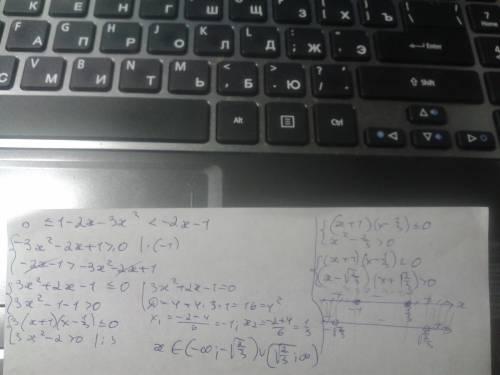 К Е Н Г Ш Щ З Х Ъ
Ф А П Р О Л Д Ж Э Enter
С М И Т Ь Б Ю Shift
Alt Ctrl
0 ≤ 1-2x-3x² < -2x-1
{-3x²-2x+1≥0 |·(-1)
-2x-1>-3x²-2x+1
{3x²+2x-1≤0
3x²-1-1>0
{3(x+1)(x-1/3)≤0
3x²-2>0 |:3
3x²+2x-1=0
D=4+4·3·1=16=4²
x₁=(-2-4)/6=-1; x₂=(-2+4)/6=1/3
x∈(-∞;-√(2/3))∪(√(2/3);∞)
{(x+1)(x-1/3)≤0
x²-2/3>0
{(x+1)(x-1/3)≤0
(x-√(2/3))(x+√(2/3))>0